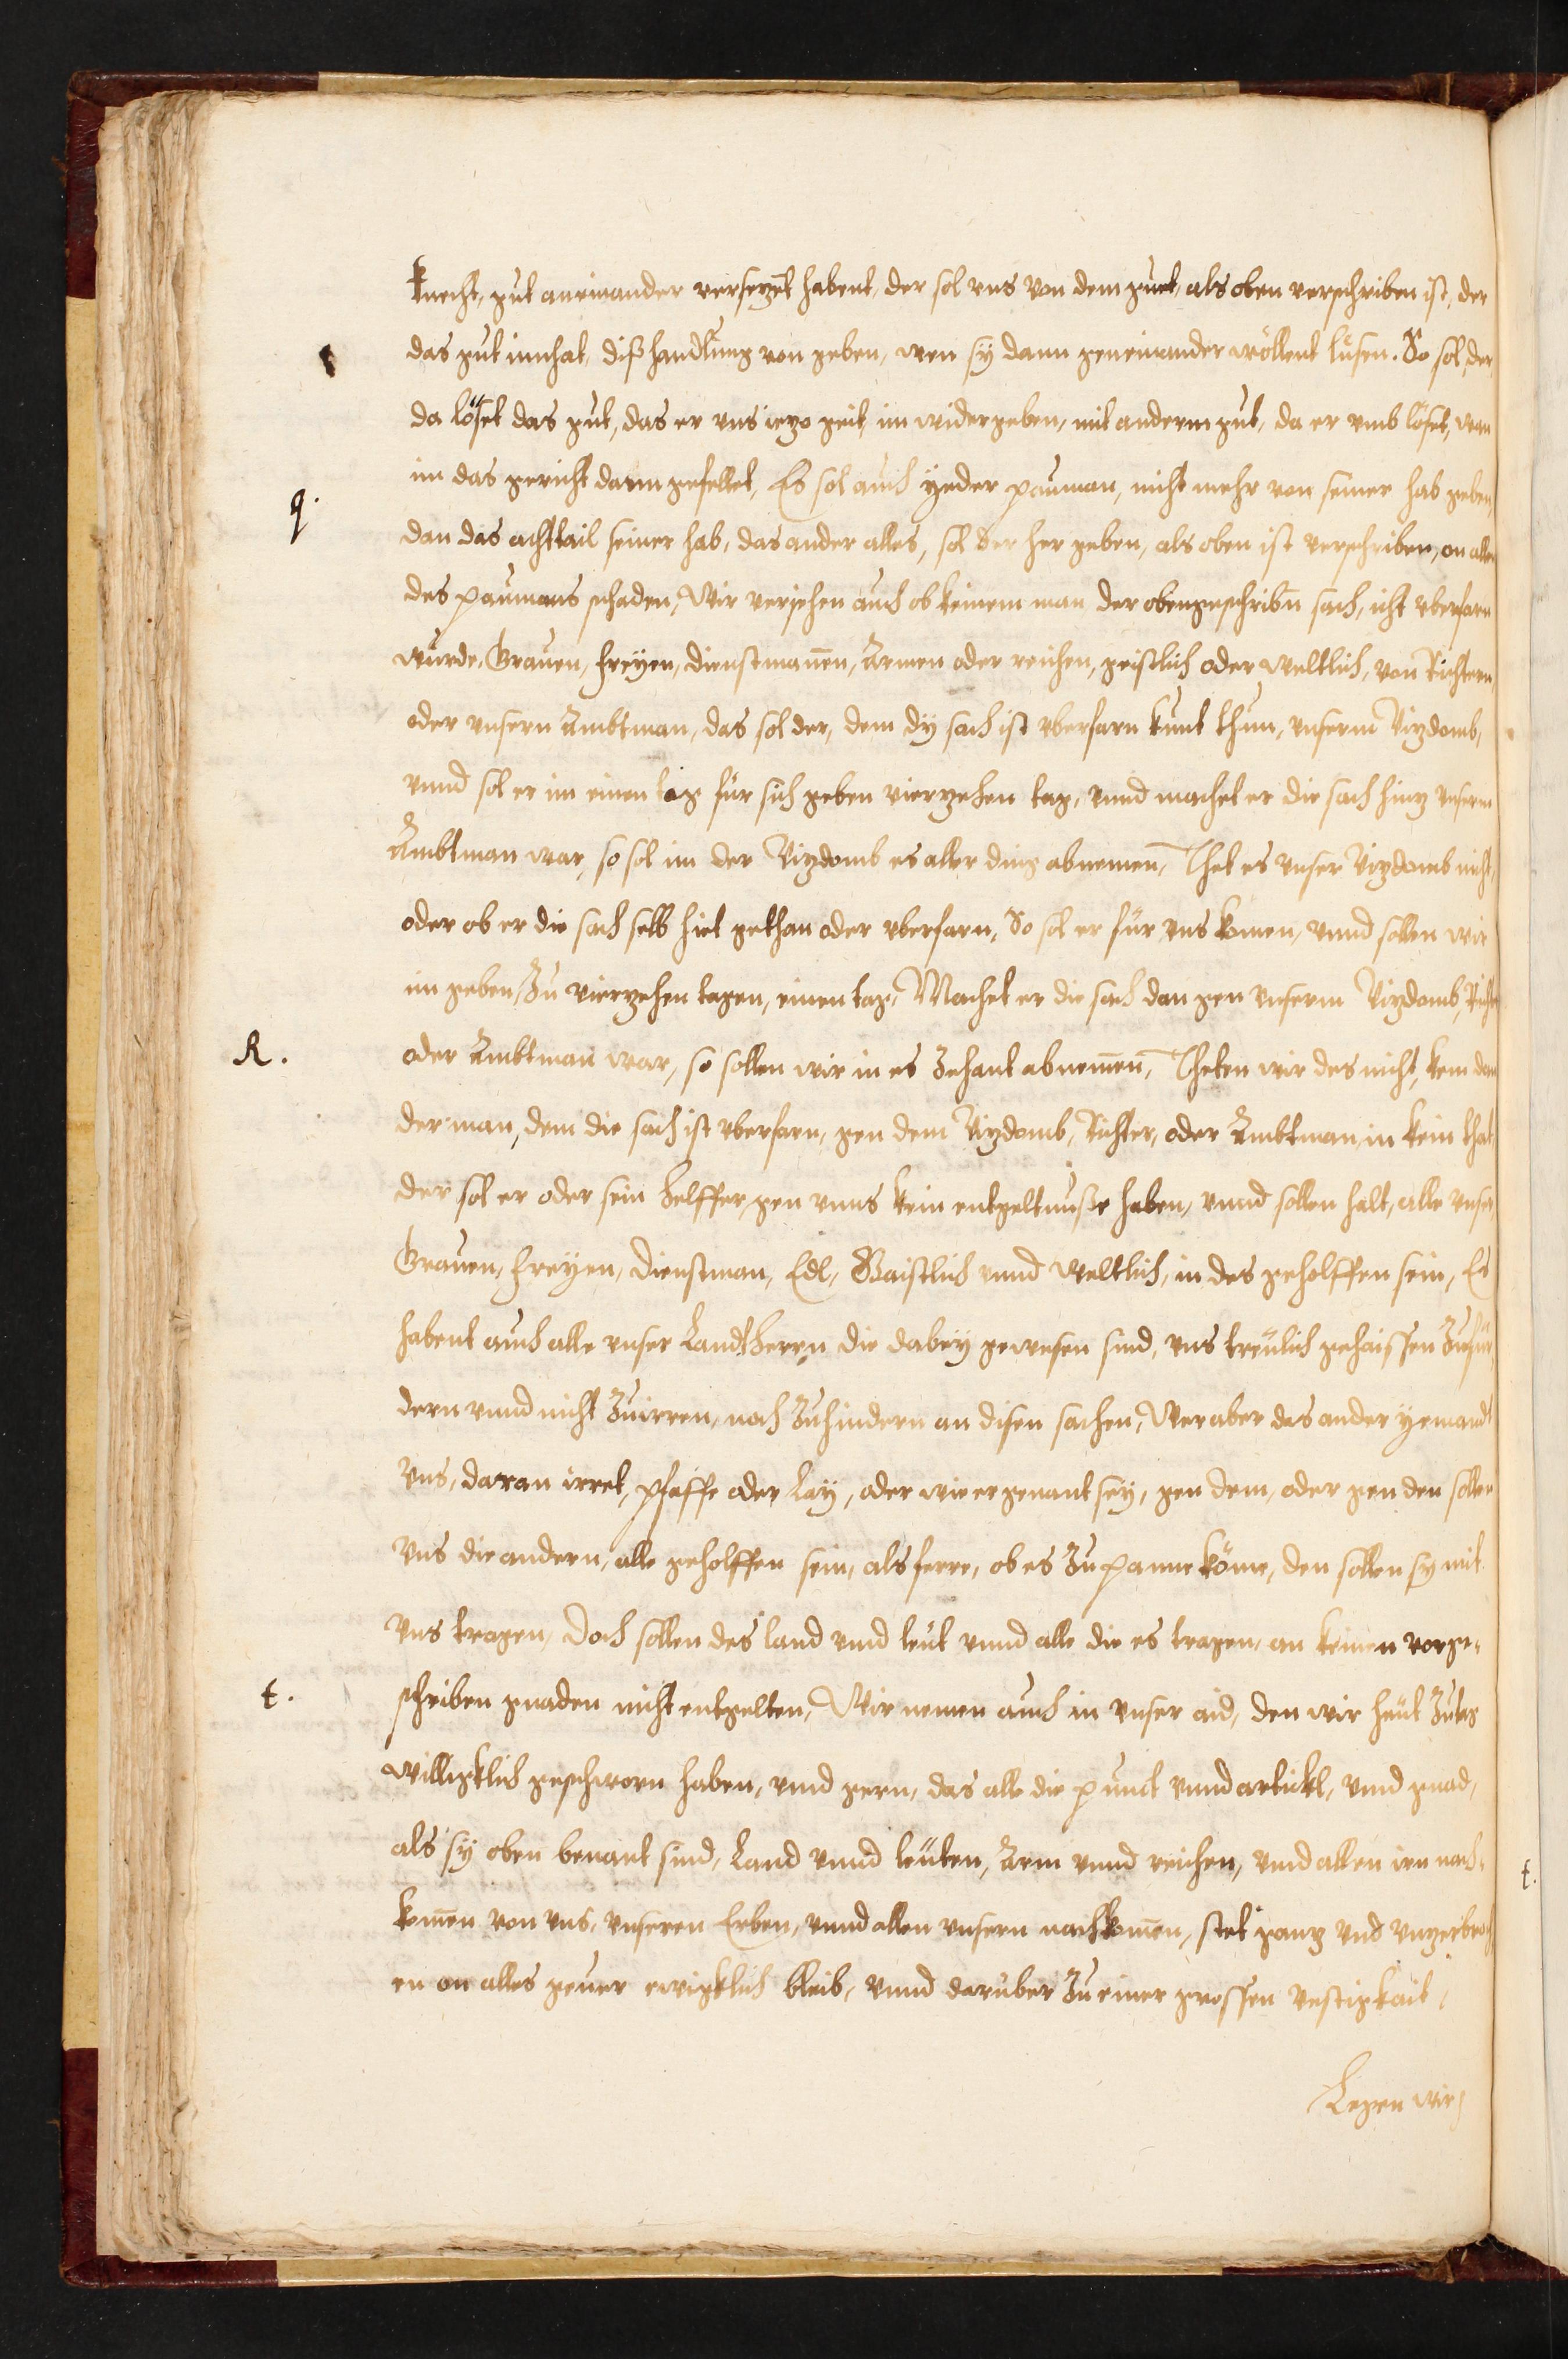 knecht, gut aneinander versezt habent, der sol vns von dem guet, als oben verschriben ist, der
das gut innhat, diß handlung von geben, wen sy dann geneinander wöllent lüsen. So sol, der
da löset das gut, das er vns iezo geit, im widergeben, mit anderm gut, da er vmb löset, wan
q.
im das gericht darin gefellet, Es sol auch yeder pauman, nicht mehr von seiner hab geben,
dan das achttail seiner hab, das ander alles, sol der her geben, als oben ist verschriben, on allen
des paumans schaden, Wir versehen auch ob keinem man der obengeschribn sach, icht vberfarn
wurde, Grauen, freyen, dienstmanen, Armen oder reichen, geistlich oder weltlich, von Richtern,
oder vnsern Ambtman, das sol der, dem dy sach ist vberfarn kunt thun, vnserm Vizdomb,
vnnd sol er im einen tag für sich geben vierzehen tag, vnnd machet er die sach hinz vnserm
Ambtman war, so sol im der Vizdomb es aller ding abnemen, Thet es vnser Vizdomb nicht,
oder ob er die sach selb hiet gethan oder vberfarn, So sol er für vns komen, vnnd sollen wir
im geben, Zu vierzehen tagen, einen tag, Machet er die sach dan gen vnserm Vizdomb, Richter
R.
oder Ambtman war, so sollen wir in es Zehant abnemen, Theten wir des nicht, kem dan
der man, dem die sach ist vberfarn, gen dem Vizdomb, Richter, oder Ambtman, in kein that
der sol er oder sein helffer, gen vnns kein entgeltnusse haben, vnnd sollen halt, alle vnser
Grauen, freyen, dienstman, Edl, Gaistlich vnnd weltlich, in des geholffen sein, Es
habent auch alle vnser Landtherrn die dabey gewesen sind, vns treulich gehaissen Zufür
dern vnnd nicht Zuirren, noch Zuhindern an disen sachen, Wer aber das ander yemandt
vns, daran irret, pfaffe oder Lay, oder wie er genant sey, gen dem, oder gen den sollen
vns die andern, alle geholffen sein, als ferre, ob es Zu panne köme, den sollen sy mit
vns tragen, Doch sollen des land vnd leut vnnd alle die es tragen, an keinen vorge¬
t.
schriben gnaden nicht entgelten, Wir nemen auch in vnser aid, den wir heut Zutag
williglich geschworn haben, vnd gern, das alle die punct vnnd artickl, vnnd gnad,
als sy oben benant sind, Land vnnd leuten, Arm vnnd reichen, vnd allen irn nach¬
komen von vns, vnseren Erben, vnnd allen vnsern nachkomen, stet ganz vnd vnzerbroch
en on alles geuer ewigklich bleib, vnnd darüber Zu einer grossen vestigkait,
Legen wir
t.